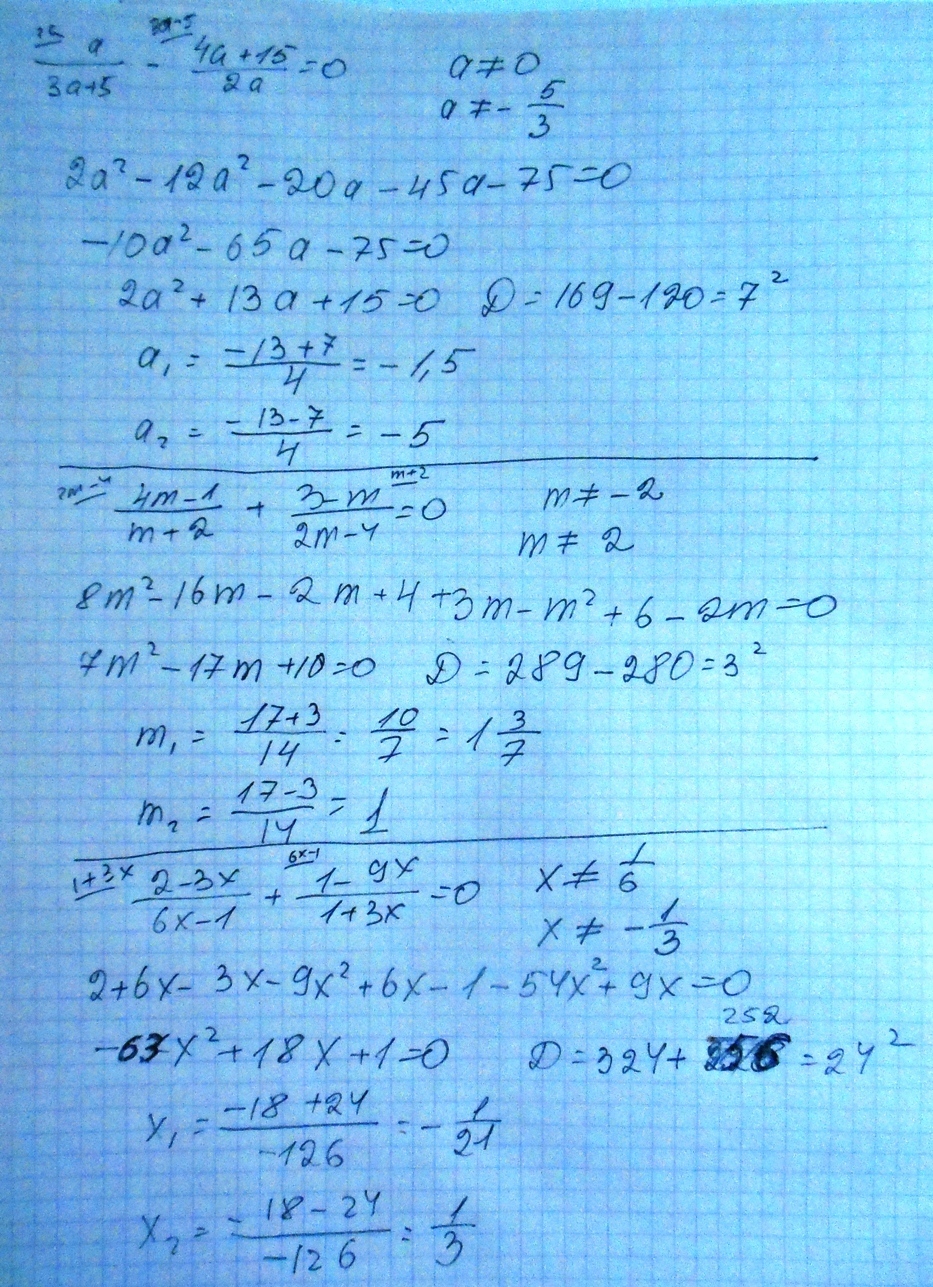 2a a/(3a+5) - 3a-5 (4a+15)/(2a) = 0 a ≠ 0
a ≠ - 5/3
2a² - 12a² - 20a - 45a - 75 = 0
-10a² - 65a - 75 = 0
2a² + 13a + 15 = 0 D = 169 - 120 = 7²
a₁ = (-13+7)/4 = -1,5
a₂ = (-13-7)/4 = -5
2m-4 (4m-1)/(m+2) + (3-m)/(2m-4) m+2 = 0 m ≠ -2
m ≠ 2
8m² - 16m - 2m + 4 + 3m - m² + 6 - 2m = 0
7m² - 17m + 10 = 0 D = 289 - 280 = 3²
m₁ = (17+3)/14 = 10/7 = 1 3/7
m₂ = (17-3)/14 = 1
1+3x (2-3x)/(6x-1) + 6x-1 (1-9x)/(1+3x) = 0 x ≠ 1/6
x ≠ - 1/3
2 + 6x - 3x - 9x² + 6x - 1 - 54x² + 9x = 0
-63x² + 18x + 1 = 0 D = 324 + 252 = 24²
x₁ = (-18+24)/(-126) = - 1/21
x₂ = (-18-24)/(-126) = 1/3